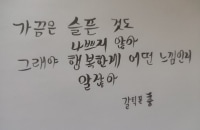 가끔은 슬픈 것도
나쁘지 않아
그래야 행복한게 어떤 느낌인지
알잖아